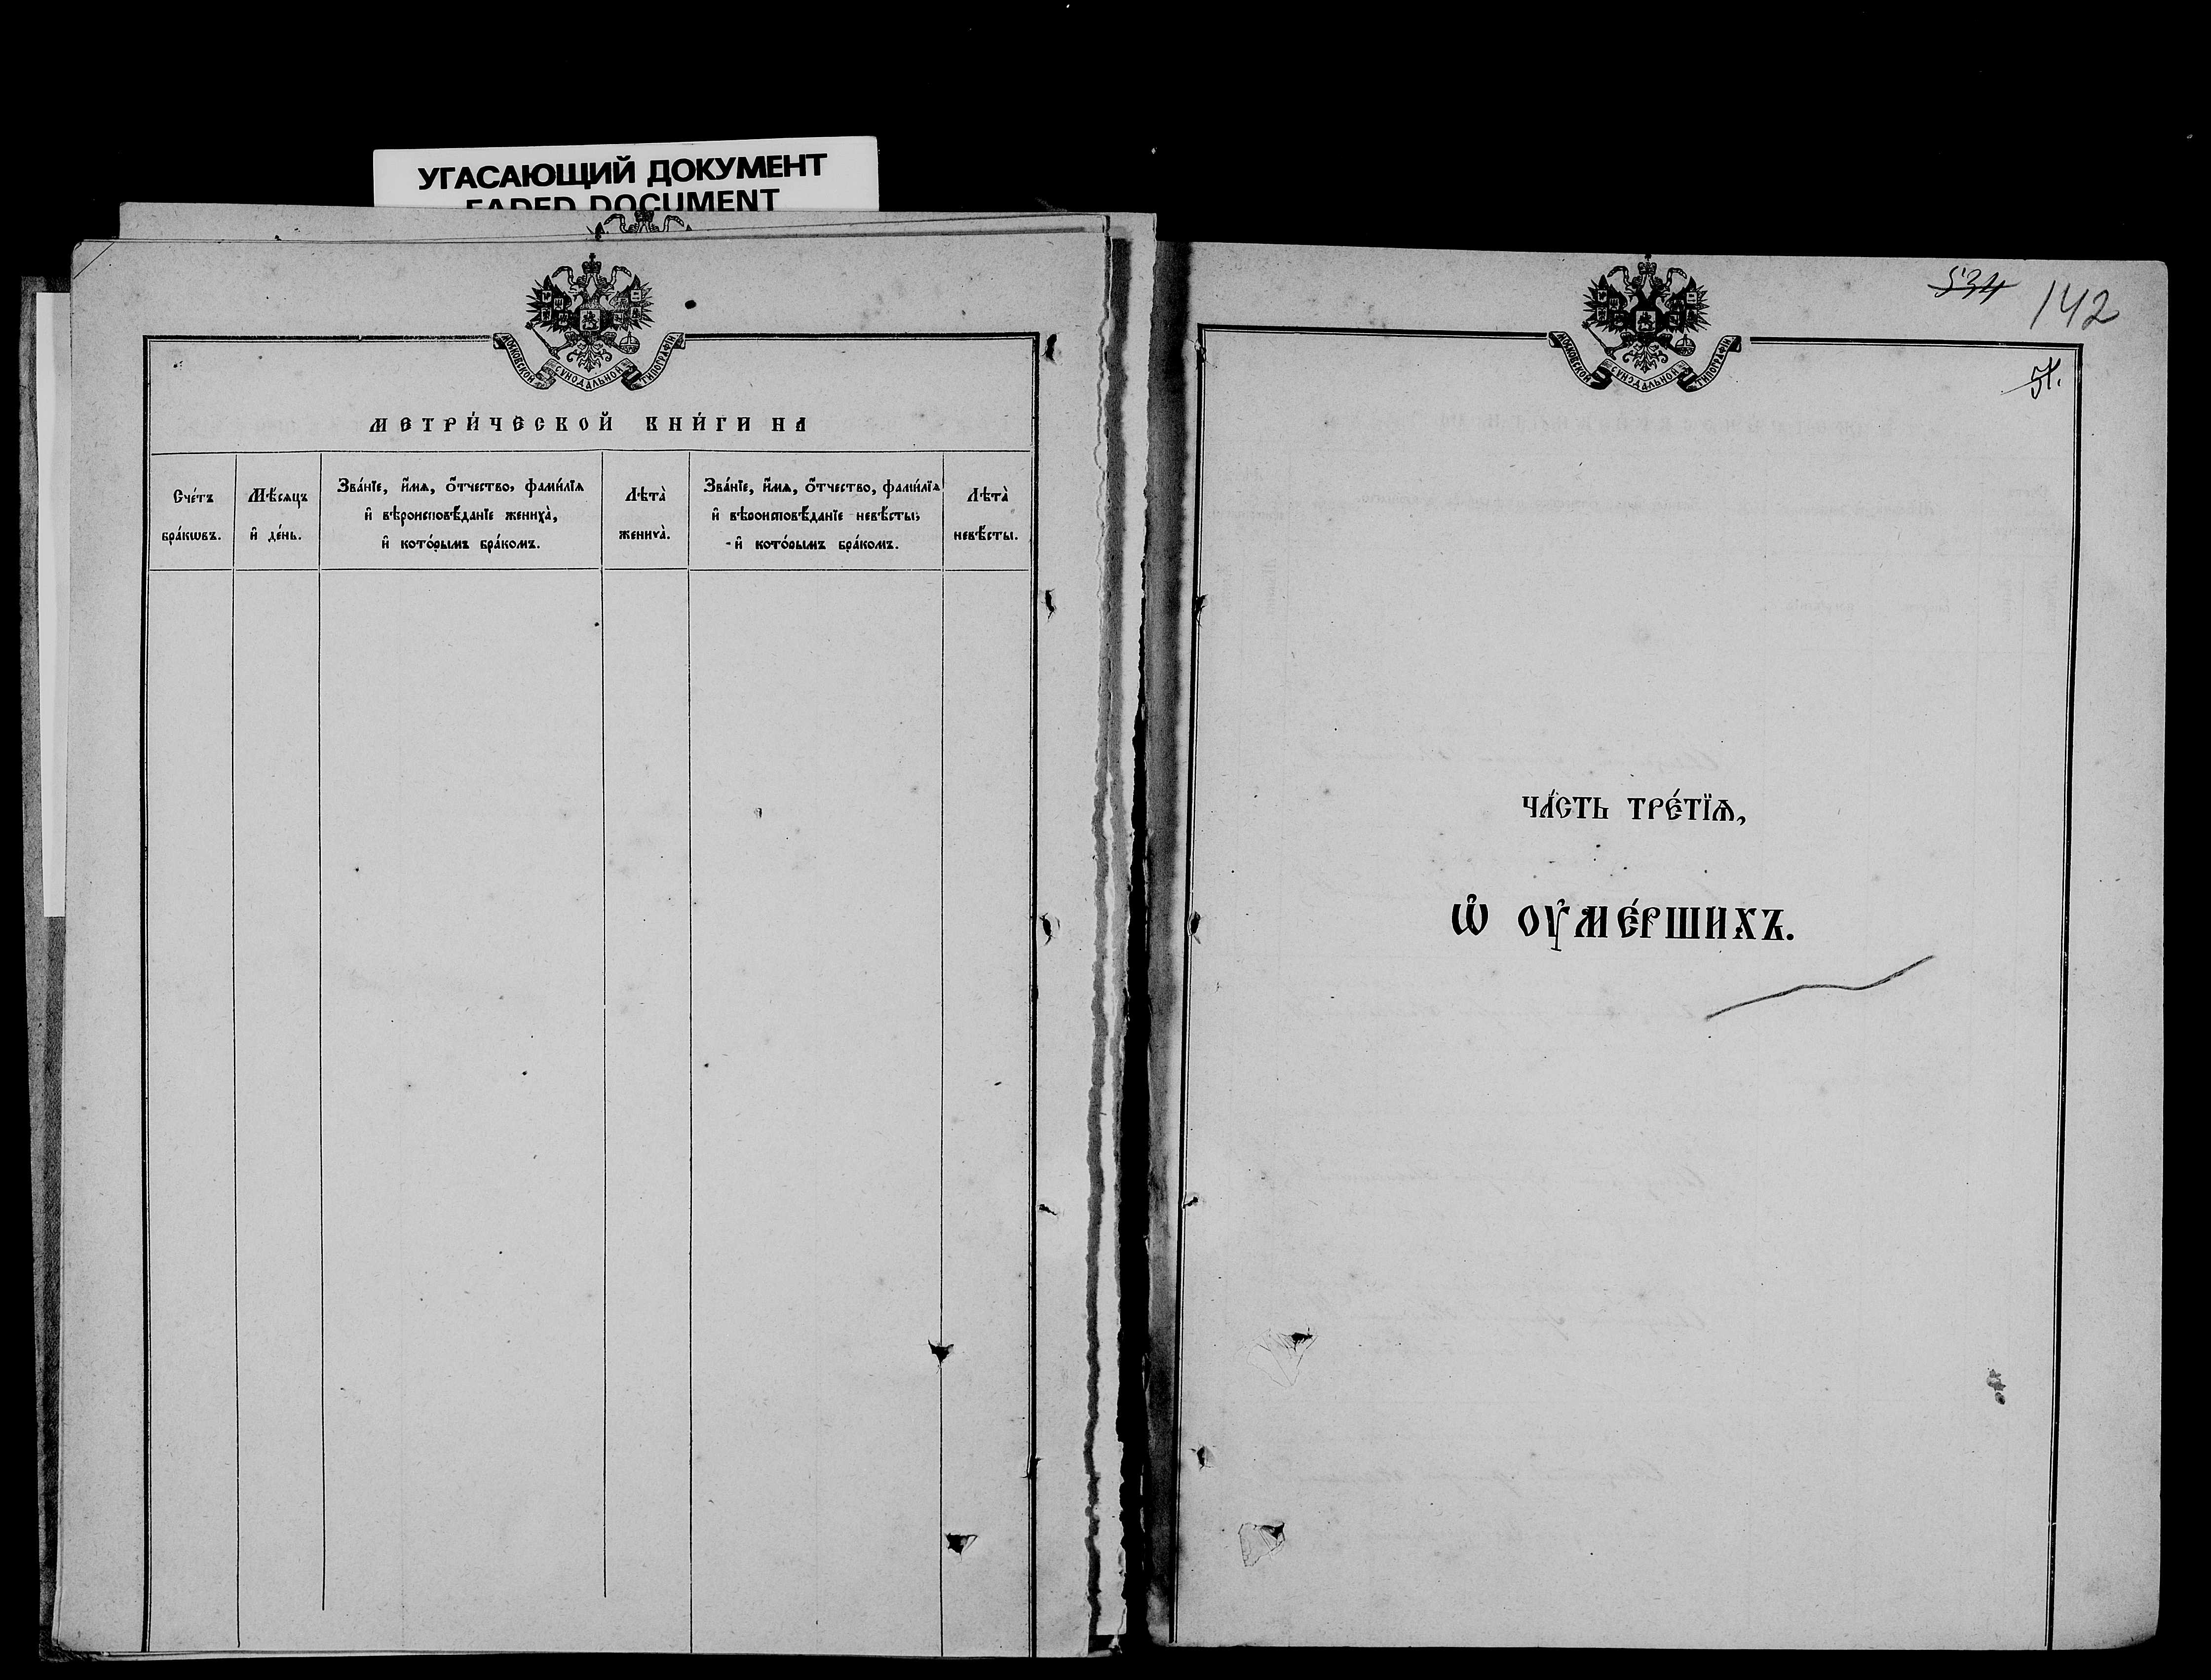 УГАСАЮЩИЙ ДОКУМЕНТ
FADED DOCUMENT
МОСКОВСКОЙ СѴНОДАЛЬНОЙ ТИПОГРАФІИ
МЕТРИ́ЧЕСКОЙ КНИ́ГИ НА
Сче́тъ бра́кѡвъ.
Мѣ́сяцъ и҆ де́нь.
Зва́нїе, и҆́мѧ, ѻ҆́тчество, фами́лїѧ
и҆ вѣроисповѣ́данїе жениха̀,
и҆ кото́рымъ бра́комъ.
Лѣта̀ жениха̀.
Зва́нїе, и҆́мѧ, ѻ҆́тчество, фами́лїѧ
и҆ вѣроисповѣ́данїе невѣ́сты,
и҆ кото́рымъ бра́комъ.
Лѣта̀ невѣ́сты.
МОСКОВСКОЙ СѴНОДАЛЬНОЙ ТИПОГРАФІИ
534 142
51.
ЧА́СТЬ ТРЕ́ТЇѦ,
Ѡ҆ ОУ҆МЕ́РШИХЪ.